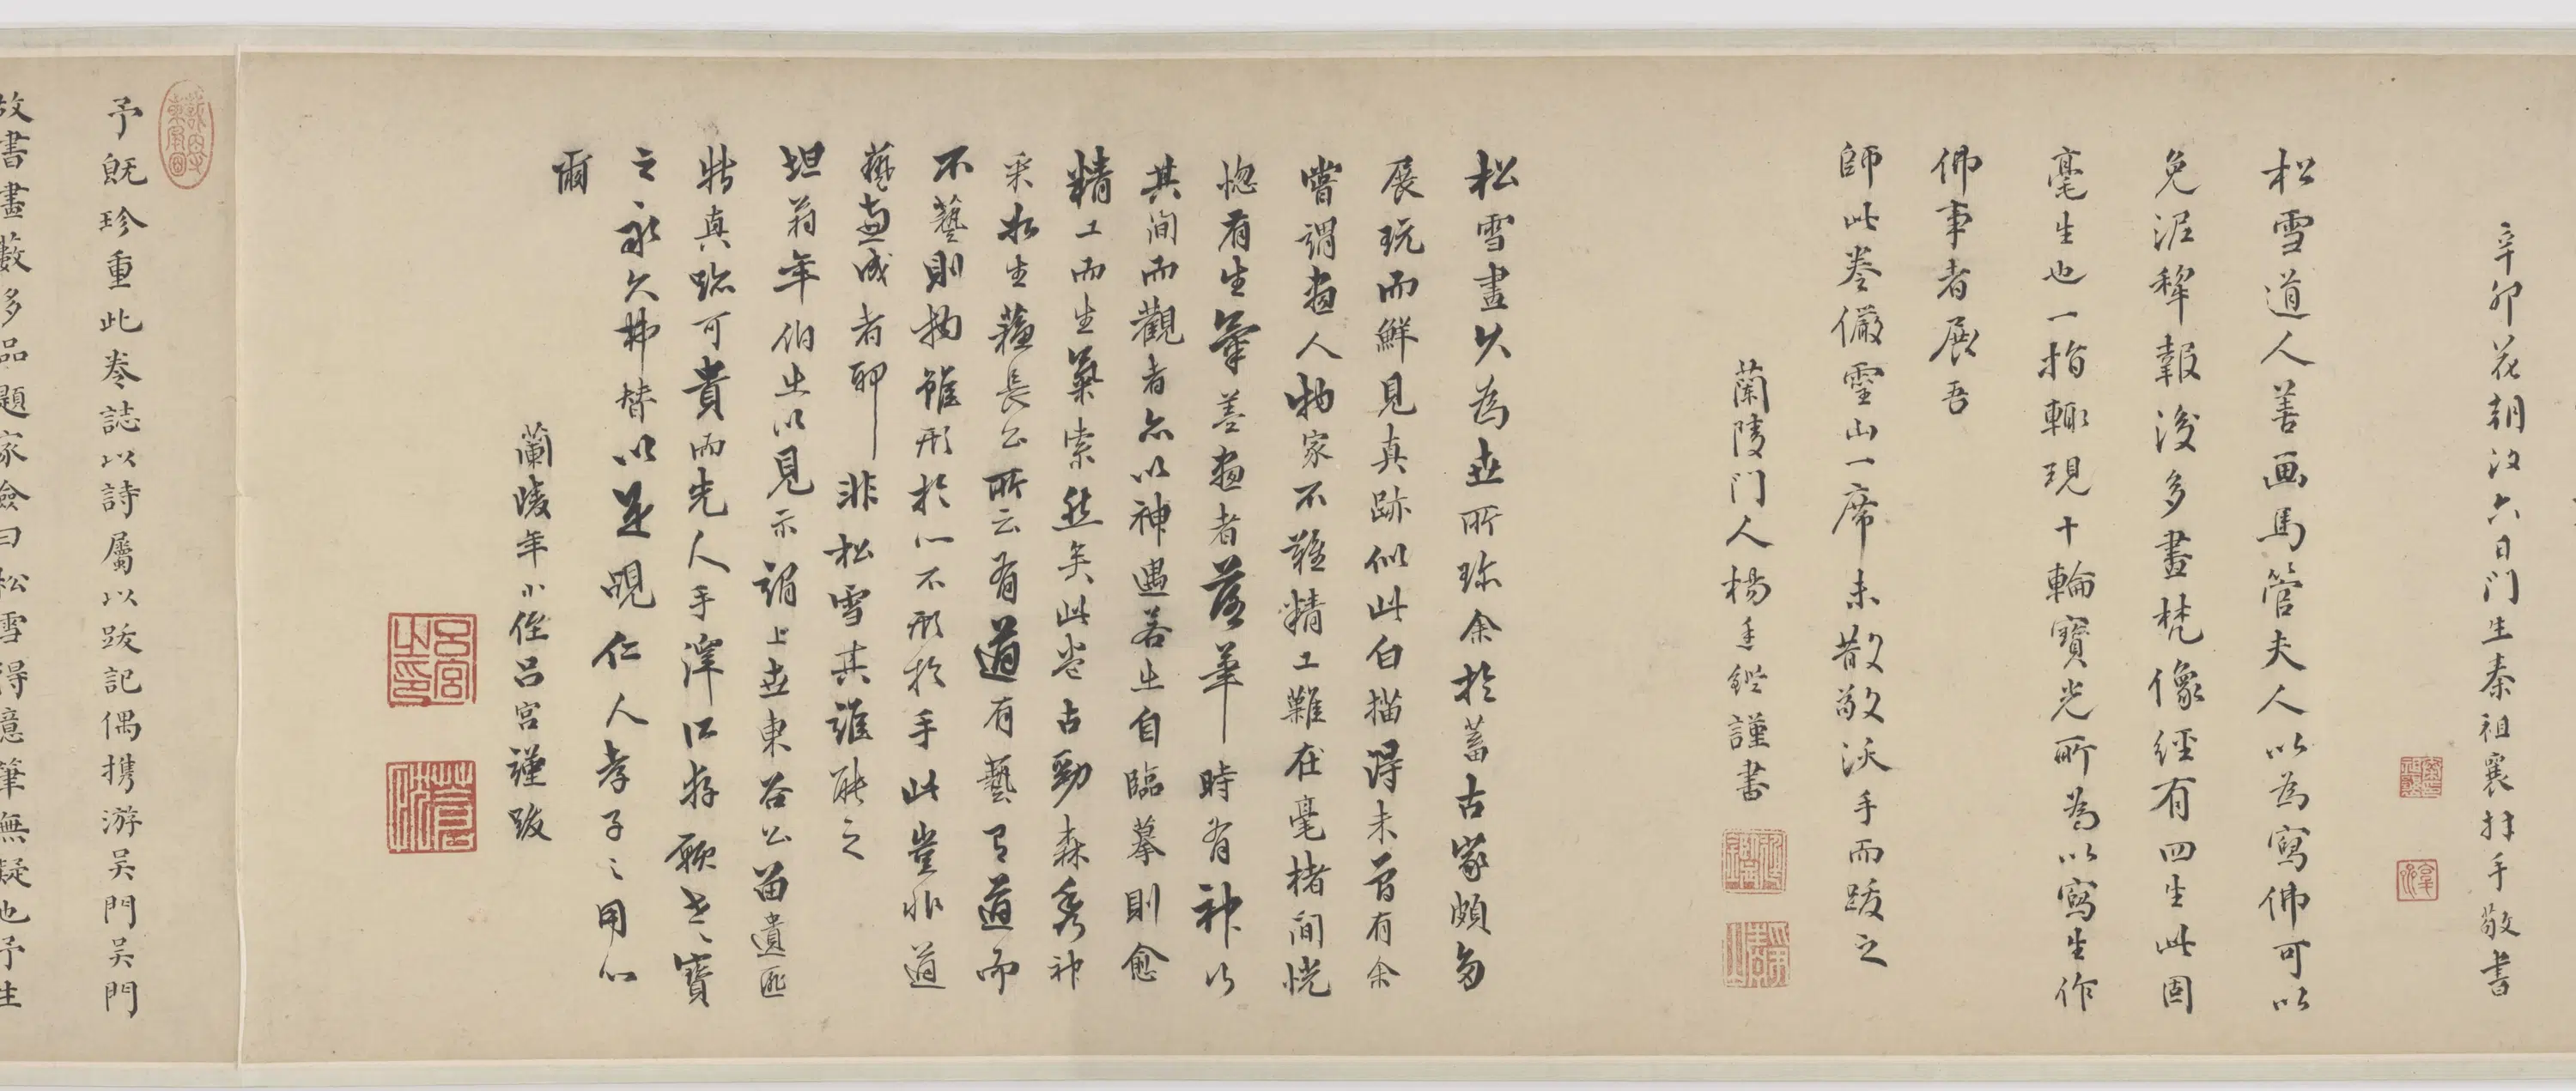 辛卯花朝後六日門生秦祖襄拜手敬書
松雪道人善画馬管夫人以為寫佛可以
免泥犂報後多畫梵像經有四生此固
毫生也一指輒現十輪寶光所為以寫生作
佛事者展吾
師此卷儼靈山一席未散敬沃手而跋之
蘭陵門人楊廷鑑謹書
松雪畫久為世所珍余於蓄古家頗多
展玩而鮮見真跡似此白描淂未曾有余
嘗謂畫人物家不難精工難在毫楮間恍
惚有生氣善畫者落筆時有神以
其間而觀者亦以神遇若止自臨摹則愈
精工而生氣索然矣此卷古勁森秀神
采如生蘓長公所云有道有藝有道而
不藝則物雖形於心不形於手此豈非道
藝兩成者耶非松雪其誰能之
坦菴年伯出以見示謂上世東谷公留遺匪
特真跡可貴而先人手澤所存願世寶
之永久弗替以是覘仁人孝子之用心
爾
蘭陵年小侄呂宮謹跋
予既珍重此卷誌以詩屬以跋記偶携游吴門吴門
故書畫藪多品題家僉曰松雪得意筆無疑也予生